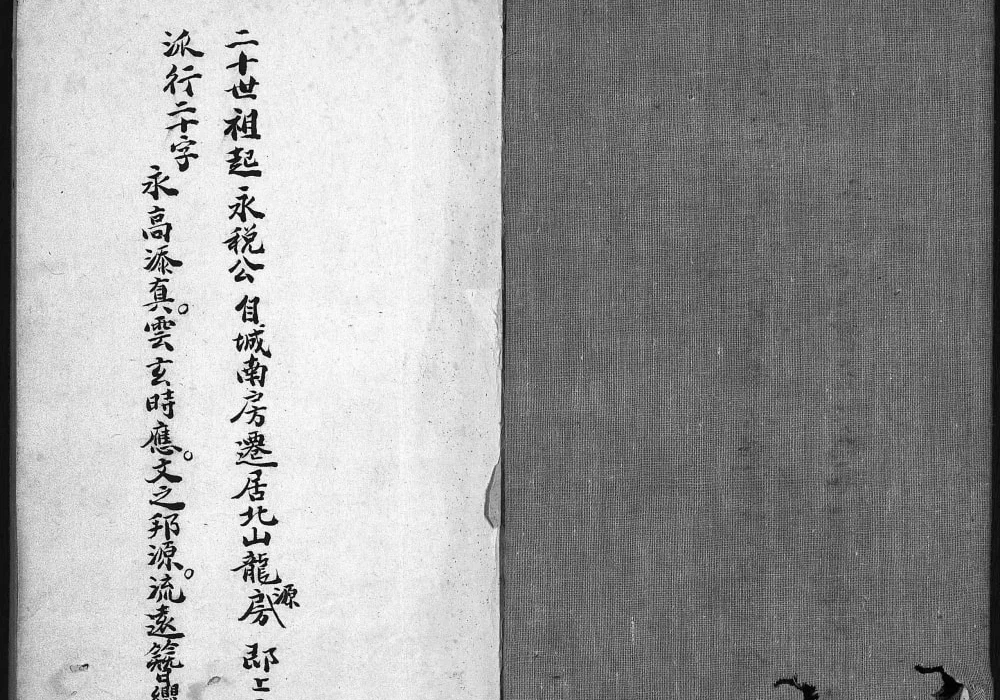 二十世祖起永税公自城南房遷居北山龍源房即上
派行二十字
永高添真。雲玄時應。文之邦源。流遠簪纓